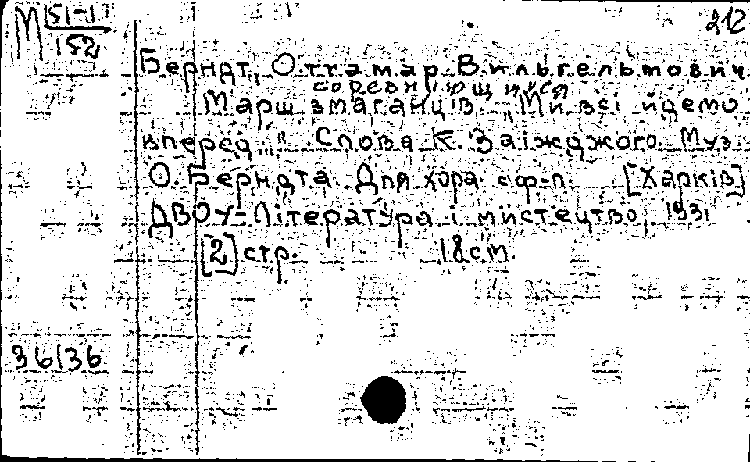 М 51-1
152
212
Берндт, Оттамар Вильгельмович
соревнующихся
Марш змаганців. „Ми всі йдемо
вперед..." Слова К. Заїжджого. Муз.
О. Берндта. Для хора с ф-п. [Харків]
ДВОУ-Література і мистецтво, 1931
[2] стр. 18 см.
36136